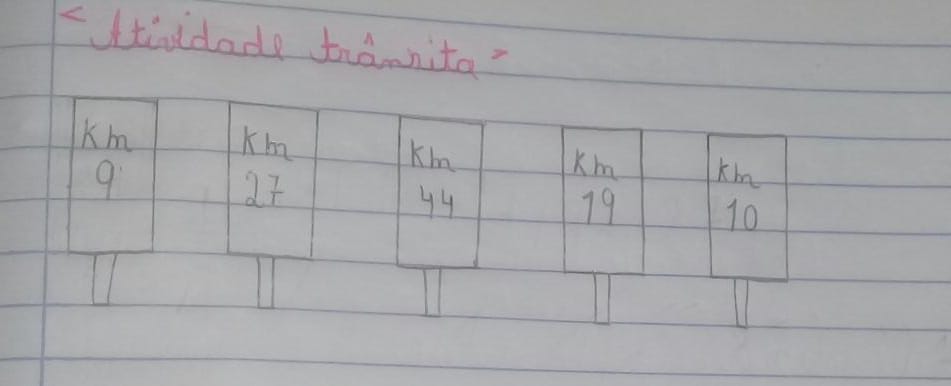 < Atividade trânsito >
Km Km Km Km Km
9 27 44 19 10